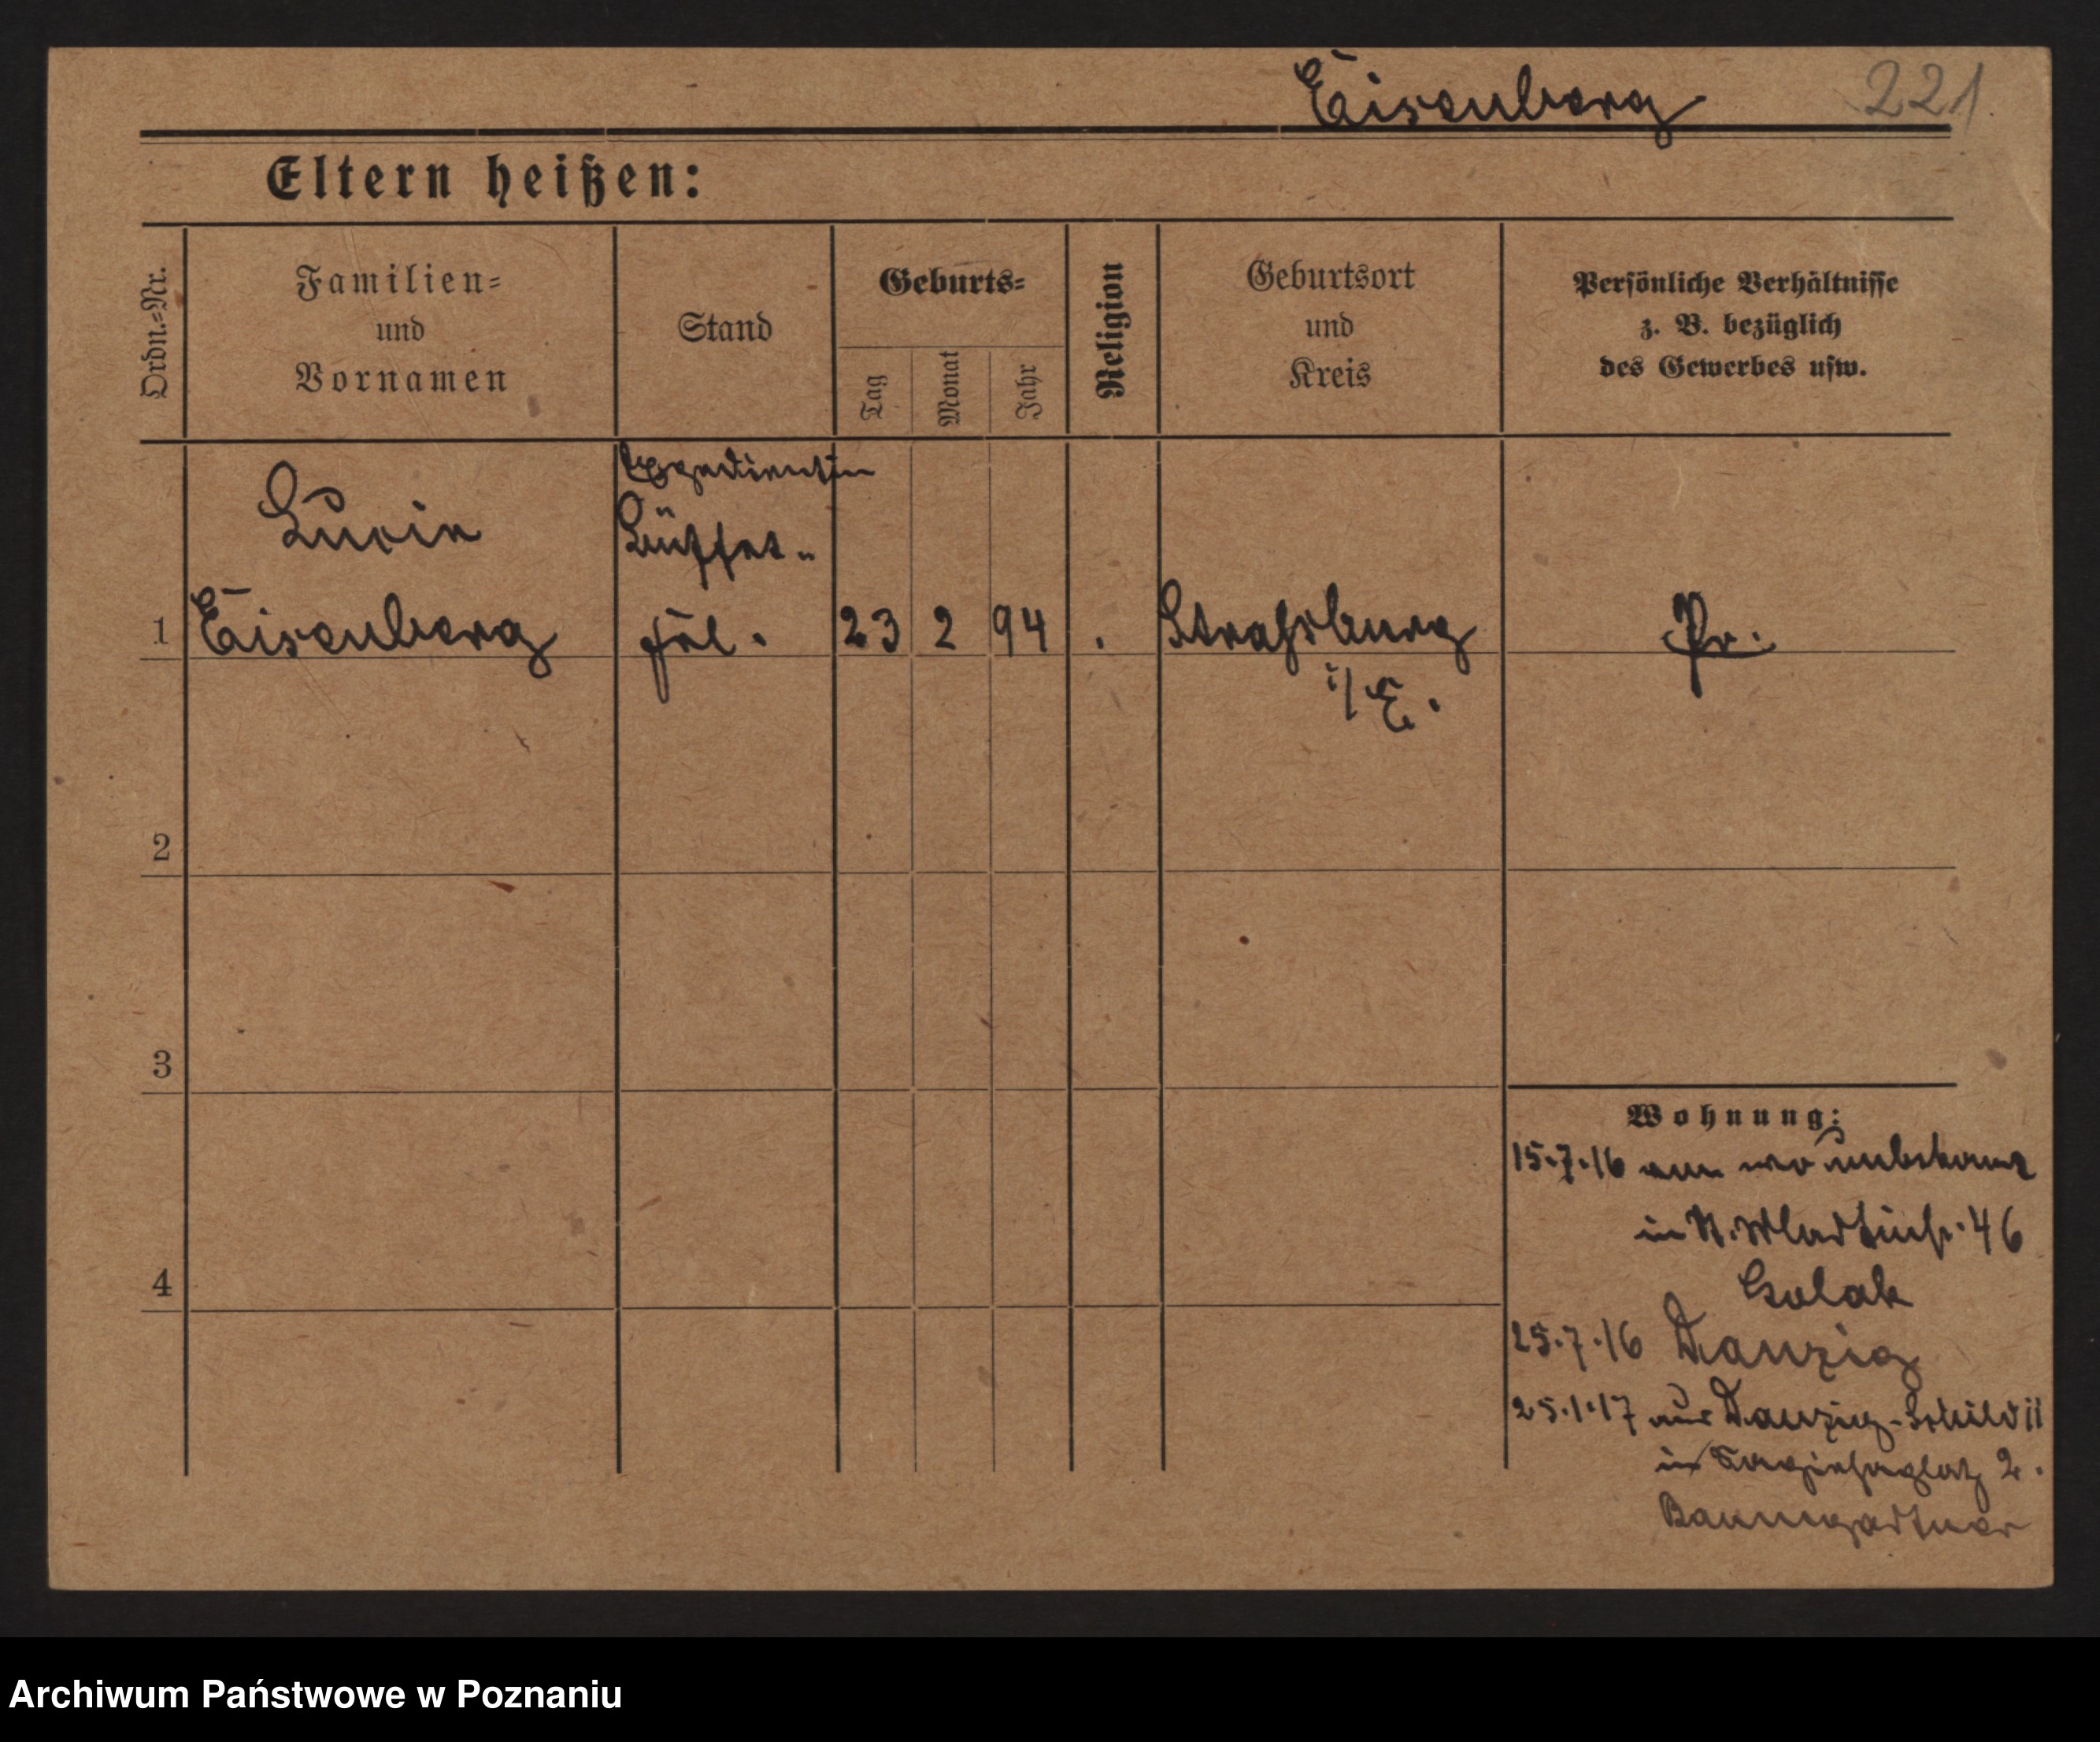 Eisenberg 221
Eltern heißen:
Ordn.=Nr.
Familien=
und
Vornamen
Stand
Geburts=
Tag
Monat
Jahr
Religion
Geburtsort
und
Kreis
Persönliche Verhältnisse
z. B. bezüglich
des Gewerbes usw.
Expedientin
Lucie
Büffet-
1 Eisenberg frl. 23 2 94 . Straßburg Pr.
i/E.
2
3
4
Wohnung:
15.7.16 von wo unbekannt
in St. Martinstr. 46
25.7.16 Danzig
25.1.17 aus Danzig-
in 2.
Baumgartner
Archiwum Państwowe w Poznaniu